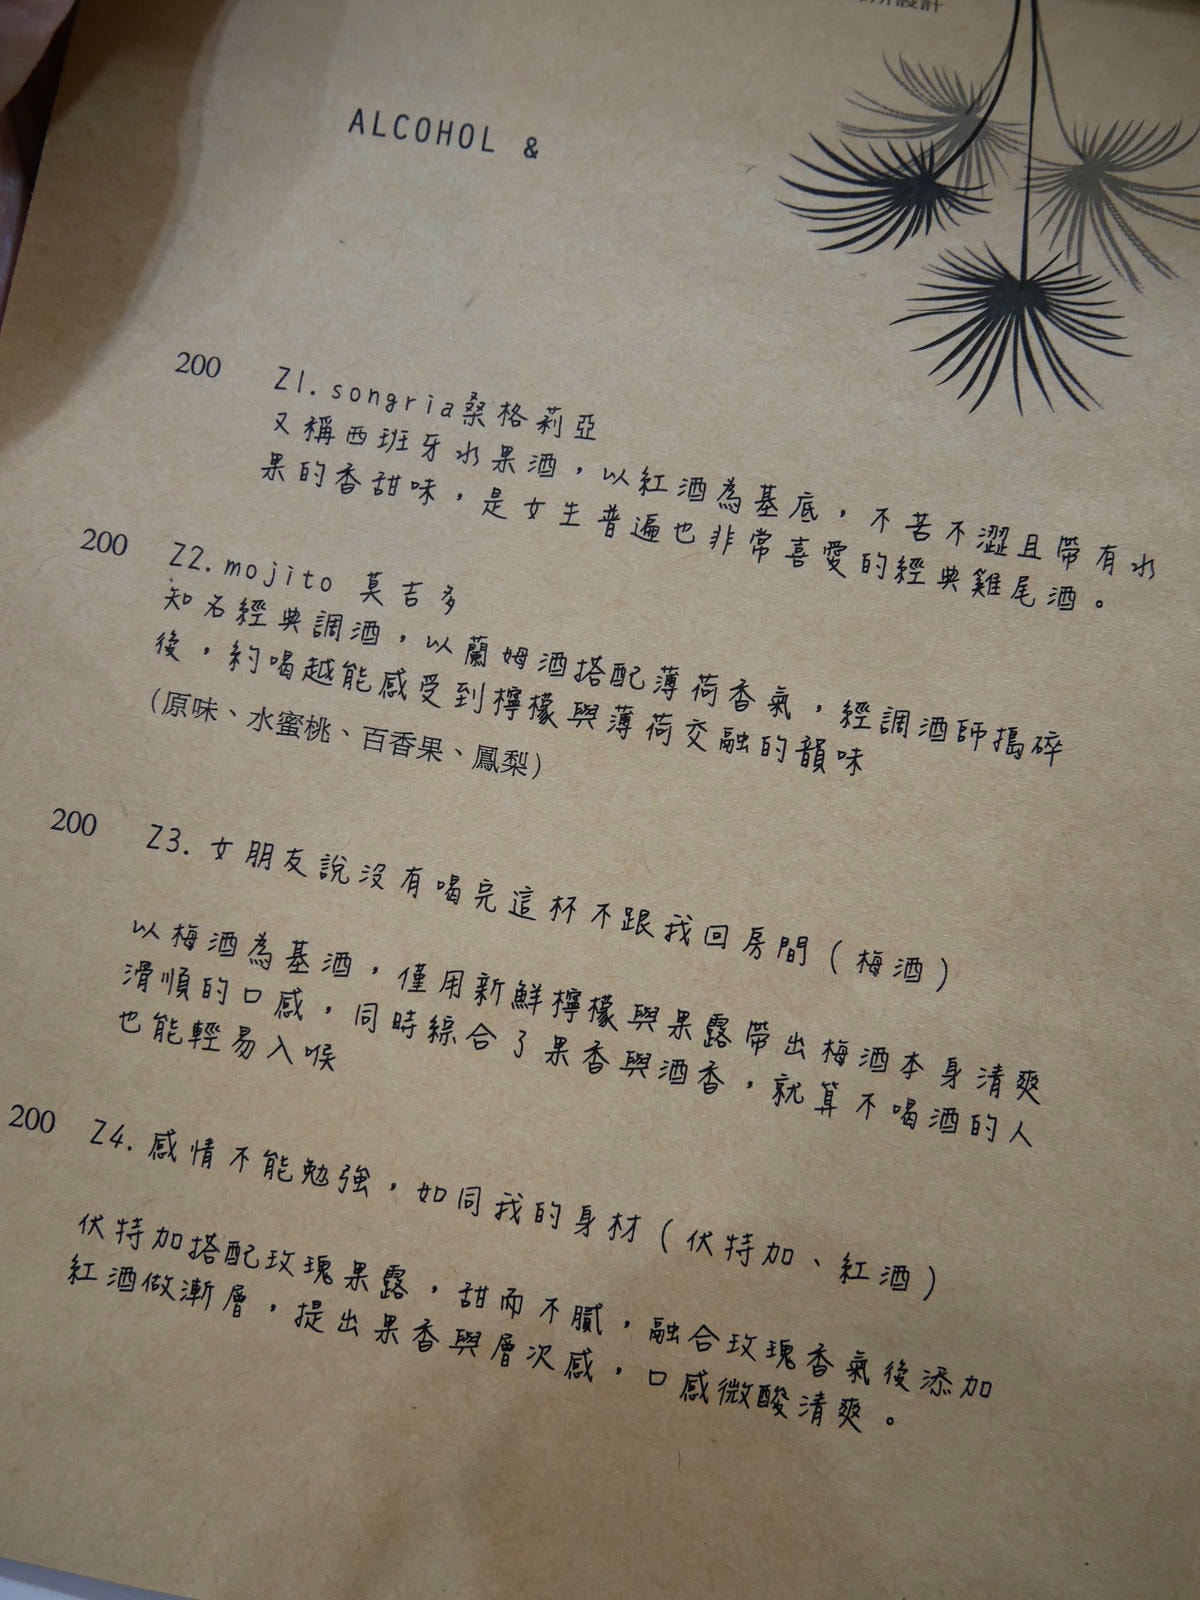 所設計
ALCOHOL &
200 Z1.songria桑格莉亞
又稱西班牙水果酒，以紅酒為基底，不苦不澀且帶有水
果的香甜味，是女生普遍也非常喜愛的經典雞尾酒。
200 Z2.mojito 莫吉多
知名經典調酒，以蘭姆酒搭配薄荷香氣，經調酒師搗碎
後，約喝越能感受到檸檬與薄荷交融的韻味
（原味、水蜜桃、百香果、鳳梨）
200 Z3. 女朋友說沒有喝完這杯不跟我回房間（梅酒）
以梅酒為基酒，僅用新鮮檸檬與果露帶出梅酒本身清爽
滑順的口感，同時綜合了果香與酒香，就算不喝酒的人
也能輕易入喉
200 Z4. 感情不能勉強，如同我的身材（伏特加、紅酒）
伏特加搭配玫瑰果露，甜而不膩，融合玫瑰香氣後添加
紅酒做漸層，提出果香與層次感，口感微酸清爽。